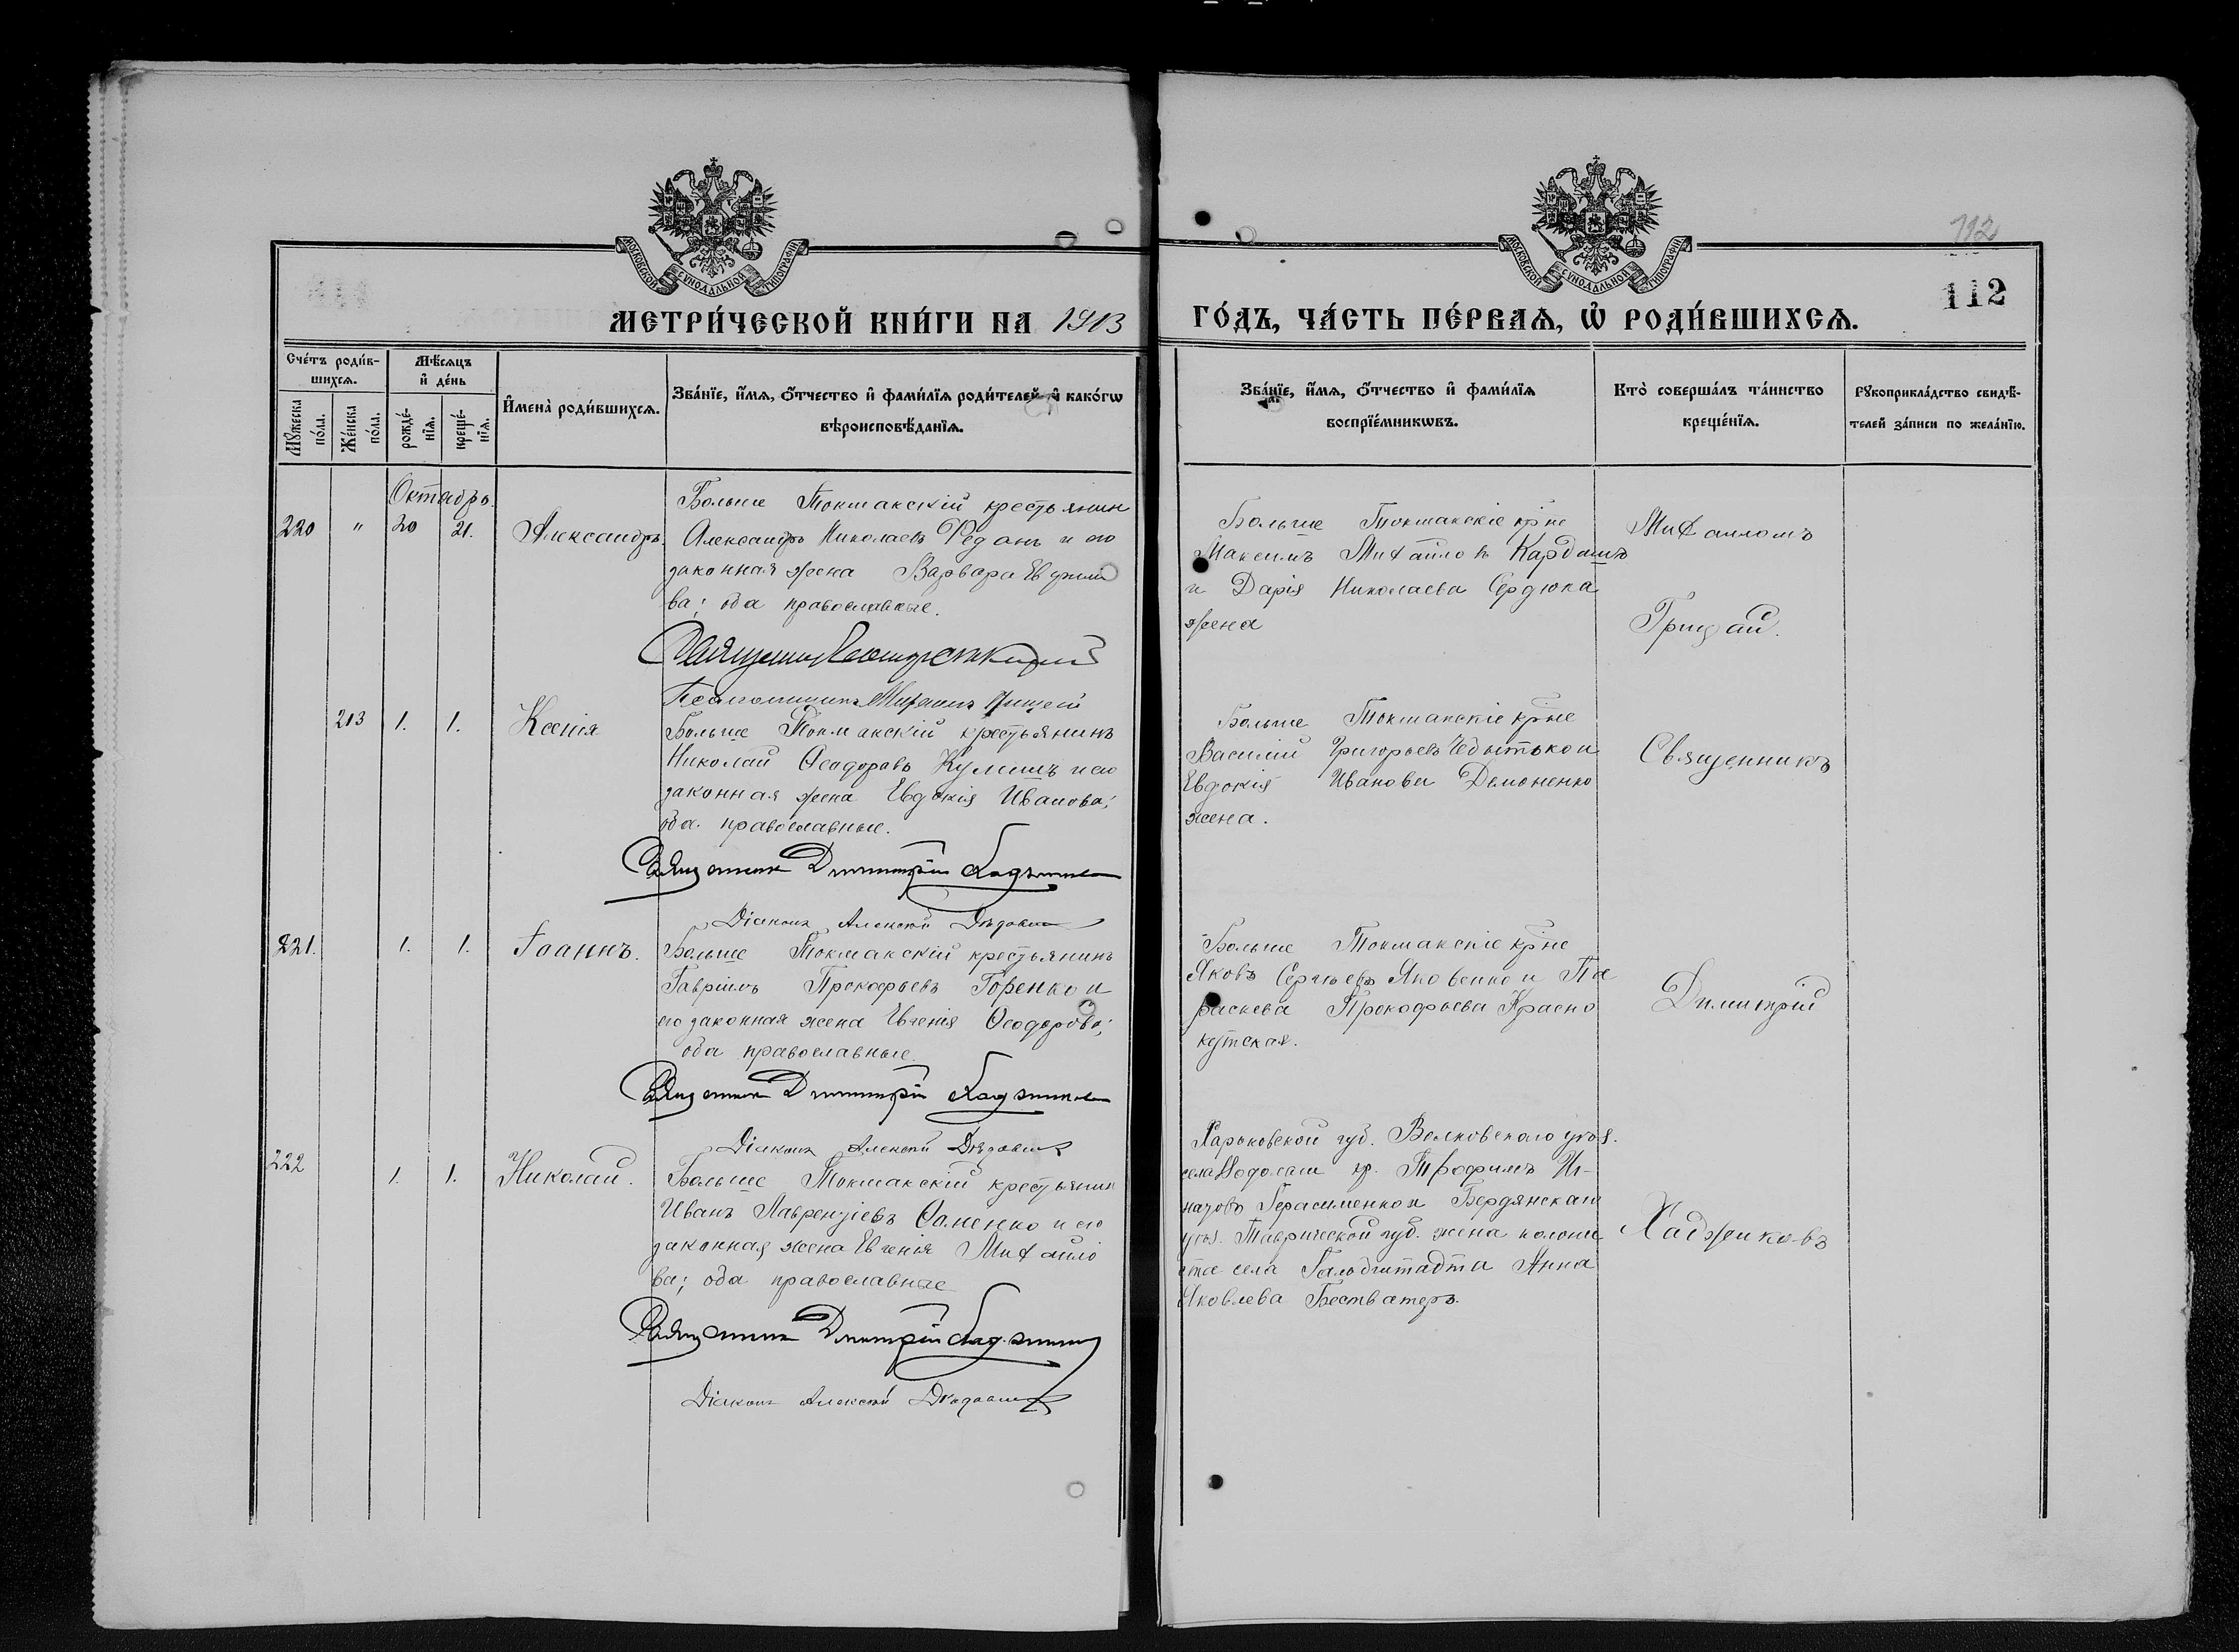 112
112
МОСКОВСКОЙ СѴНОДАЛЬНОЙ ТИПОГРАФІИ
МОСКОВСКОЙ СѴНОДАЛЬНОЙ ТИПОГРАФІИ
МЕТРИ́ЧЕСКОЙ КНИ́ГИ НА 1913
ГО́ДЪ, ЧА́СТЬ ПЕ́РВАѦ, Ѡ҆ РОДИ́ВШИХСѦ.
Сче́тъ роди́в-
шихсѧ.
Мꙋ́жеска по́ла.
Же́нска по́ла.
Мѣ́сѧцъ
и҆ де́нь
рожде́-
нїѧ.
креще́-
нїѧ.
И҆мена̀ роди́вшихсѧ.
Зва́нїе, и҆́мѧ, ѻ҆́тчество и҆ фами́лїѧ роди́телей, и҆ како́гѡ
вѣроисповѣ́данїѧ.
Зва́нїе, и҆́мѧ, ѻ҆́тчество и҆ фами́лїѧ
воспрїе́мникѡвъ.
Кто̀ соверша́лъ та́инство
креще́нїѧ.
Рꙋкоприкла́дство свидѣ́-
телей за́писи по жела́нїю.
Октябрь.
220 " 20 21. Александръ.
Больше Токмакскій крестьянин
Александръ Николаевъ Редань и его
законная жена Варвара
ва; оба православные.
Больше Токмакскіе кр‑не
Максимъ Михайловъ Кардашъ
и Дарія Николаева Сердюка
жена
Михаиломъ
Грицай.
213 1. 1. Ксенія
Больше Токмакскій крестьянинъ
Николай Ѳеодоровъ Кулишъ и его
законная жена Евдокія Иванова;
оба православные.
Священникъ Димитрій Хаджиновъ
Діаконъ Алексѣй
Больше Токмакскіе кр‑не
Василій Григорьевъ и
Евдокія Иванова Демоненко
жена.
Священникъ
221. 1. 1. Іоаннъ.
Больше Токмакскій крестьянинъ
Гавріилъ Прокофьевъ Горенко и
его законная жена Евгенія Ѳеодорова;
оба православные.
Священникъ Димитрій Хаджиновъ
Діаконъ Алексѣй
Больше Токмакскіе кр‑не
Яковъ Сергѣевъ Яковенко и Па
раскева Прокофьева Красно
кутская.
Димитрій
222 1. 1. Николай.
Больше Токмакскій крестьянин
Иванъ Лаврентіевъ и его
законная жена Евгенія Михайло
ва; оба православные
Священникъ Димитрій Хаджиновъ
Діаконъ Алексѣй
Харьковской губ. Волковскаго уѣз.
села кр. Трофимъ Иг-
натовъ Герасименко и Бердянскаго
уѣз. Таврической губ. жена колони
ста села Гальбштадта Анна
Яковлева Бестватеръ.
Хаджиновъ